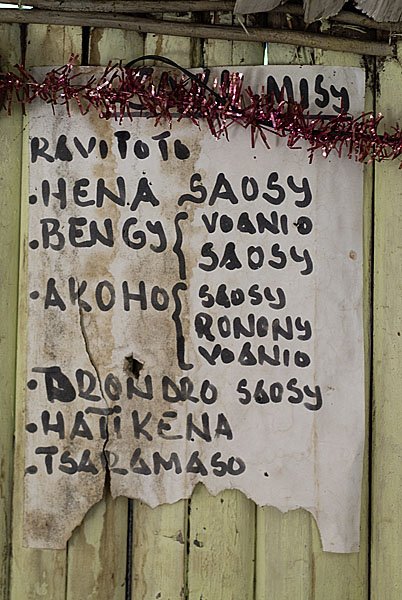 MISY
RAVITOTO
.HENA SAOSY
.BENGY { VOANIO
SAOSY
.AKOHO { SAOSY
RONONY
VOANIO
.TRONDRO SAOSY
.HATIKENA
.TSARAMASO